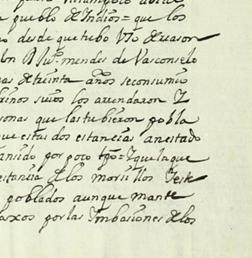 que blo de Indios - que los
o desde quetubo Vso de rason
mendes de Vasconselo
as detreinta años seconsumio
rinos suios los arrendaron I
sonas que lastubieron pobla
que estas dos estancias anestado
anido por poco tpo = I que la que
estancia de los morillos I este
poblados aunque mante
por las Imbasiones de los